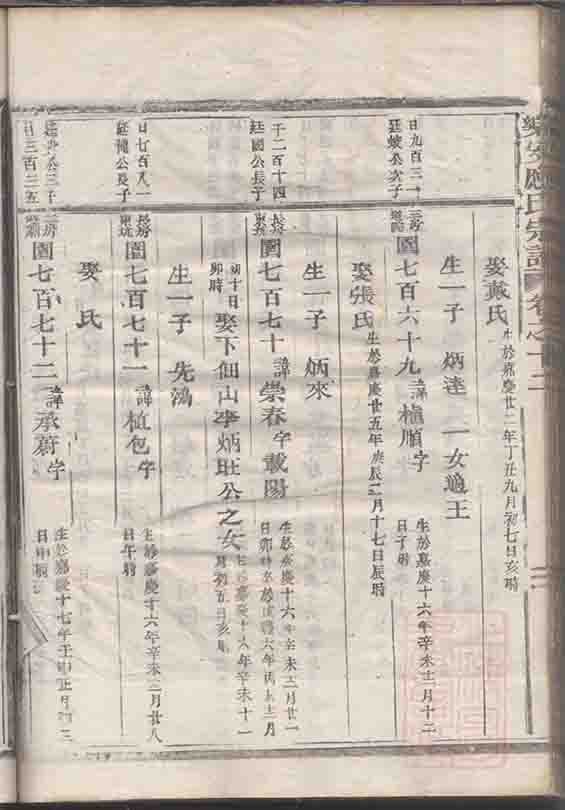 樂安應氏宗譜 卷之十二
娶戴氏 生於嘉慶廿二年丁丑九月初七日亥時
生一子 炳逵 一女適王
日九百三一
廷 公次子
圍七百六十九 諱 順字 生於嘉慶十六年辛未十二月十二
日子時
娶張氏 生於嘉慶廿五年庚辰 月十七日辰時
生一子 炳來
千二百十四
廷國公長子
長房
圍七百七十 諱崇春字載陽 生於嘉慶十六年辛未十二月廿一
日卯時 六年丙 十二月
初十日
卯時
娶下佃山李炳旺公之女 生於嘉慶十六年辛未十一
月初五日亥時
生一子 先鴻
日七百八一
廷 公長子
長房
圍七百七十一 諱植包字 生於嘉慶十六年辛未三月廿八
日午時
娶 氏
日三百三五
公三子
房
圍七百七十二 諱承蔚字 生於嘉慶十七年壬申正月初三
日申時